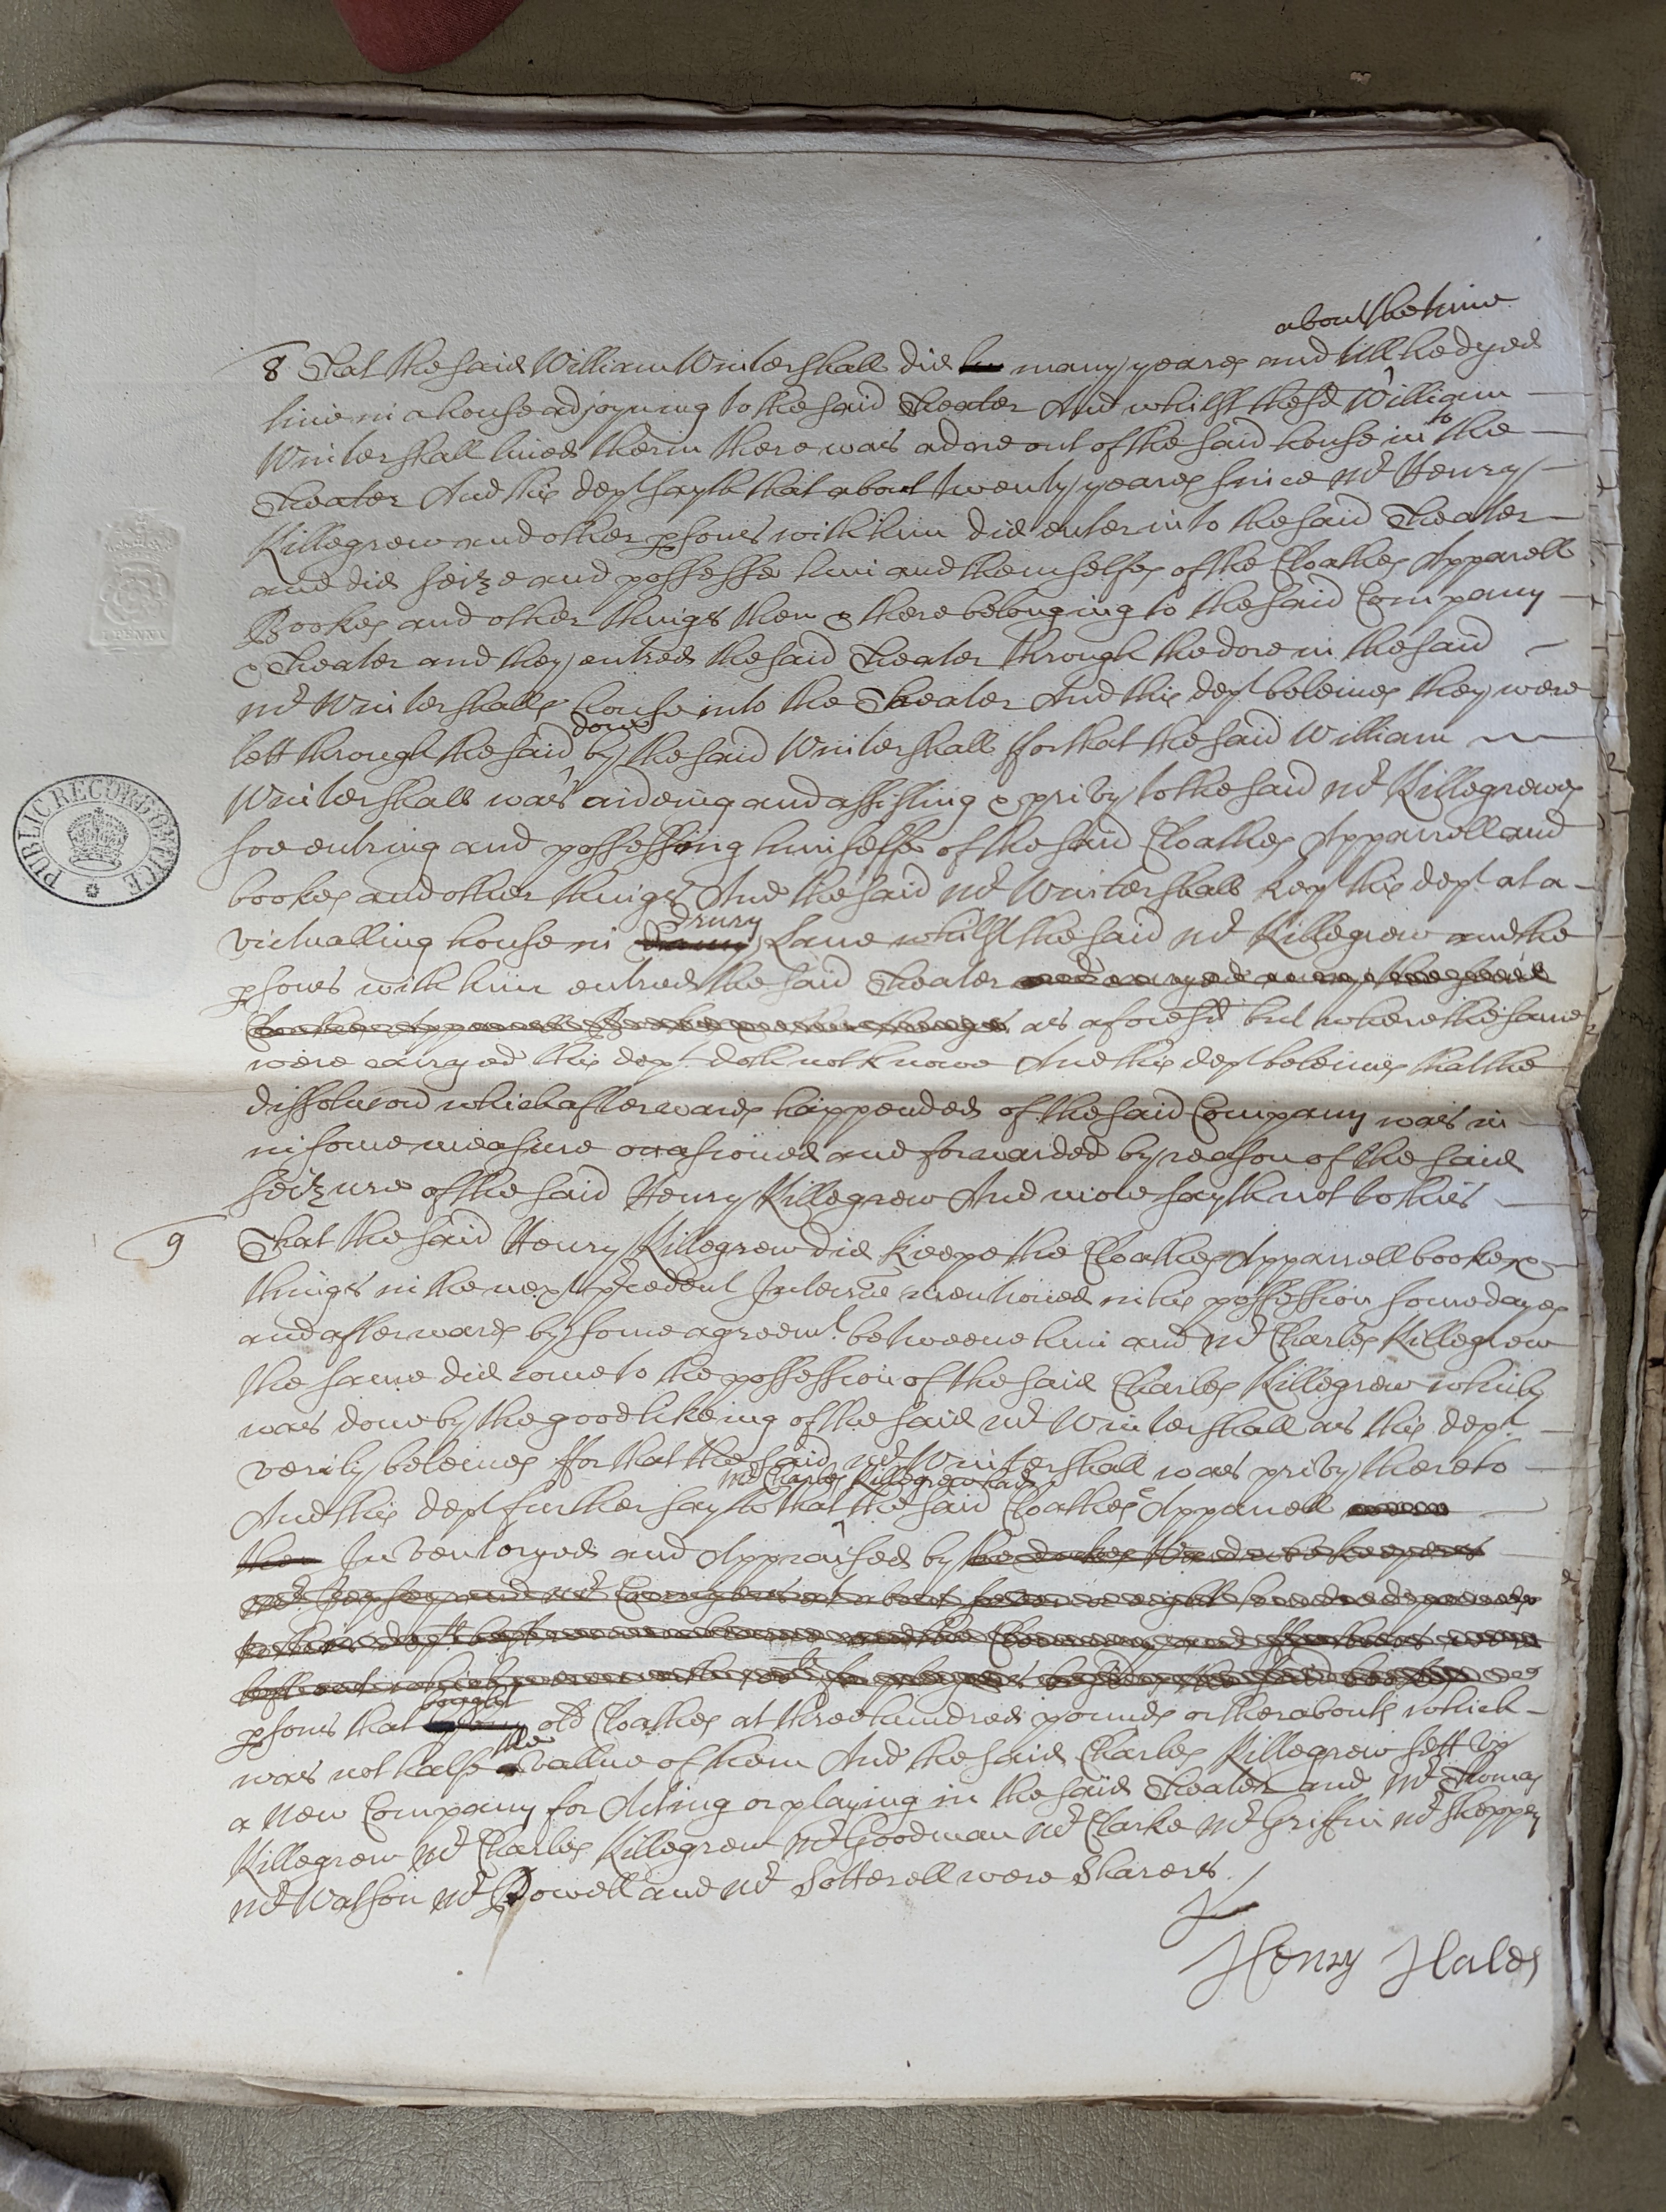 about the time
8 That the said William Wintershall did many yeares and till he dyed
live in a house adjoyning to the said Theater And whilst the sd William
Wintershall lived therin there was a dore out of the said house into the
Theater And this dept sayth that about twenty yeares since Mr Henry
Killegrew and other psons with him did enter into the said Theater
and did seize and possesse him and themselfes of the Cloathes Apparell
Bookes and other things then & there belonging to the said Company
& Theater and they entred the said Theater through the dore in the said
Mr Wintershalls house into the Theater And this dept beleives they were
dore
lett through the said by the said Wintershall ffor that the said William
Wintershall was aideing and assisting & privy to the said Mr Killegrewes
soe entring and possessing himselfe of the said Cloathes Apparrell and
bookes and other things And the said Mr Wintershall kept this dept at a
Drury
victualling house in Lane whilst the said Mr Killegrew and the
psons with him entred the said Theater
as aforesd but where the same
were carryed this dept doth not knowe And this dept beleives that the
dissolucon which afterwards happened of the said Company was in
in some measure occasioned and forwarded by reason of the said
seizure of the said Henry Killegrew And more sayth not to this
9 That the said Henry Killegrew did keepe the Cloathes Apparrell bookes &
things in the next precedent Interr mentioned in his possession some dayes
and afterwards by some agreemt. betweene him and Mr Charles Killegrew
the same did come to the possession of the said Charles Killegrew which
was done by the good likeing of the said Mr Wintershall as this dept
verily beleives ffor that the said Mr Wintershall was privy thereto
Mr Charles Killegrew had
And this dept further sayth that the said Cloathes Apparrell
Inventoryed and Appraised by
bought
psons that old Cloathes at three hundred pounds or therabouts which
the
was not halfe vallue of them And the said Charles Killegrew sett up
a New Company for Acting or playing in the said Theater and Mr Thomas
Killegrew Mr Charles Killegrew Mr Goodman Mr Clarke Mr Griffin Mr Sheppey
Mr Watson Mr Powell and Mr Sotterell were Sharers
Henry Hales
PUBLIC RECORD OFFICE
PENNY